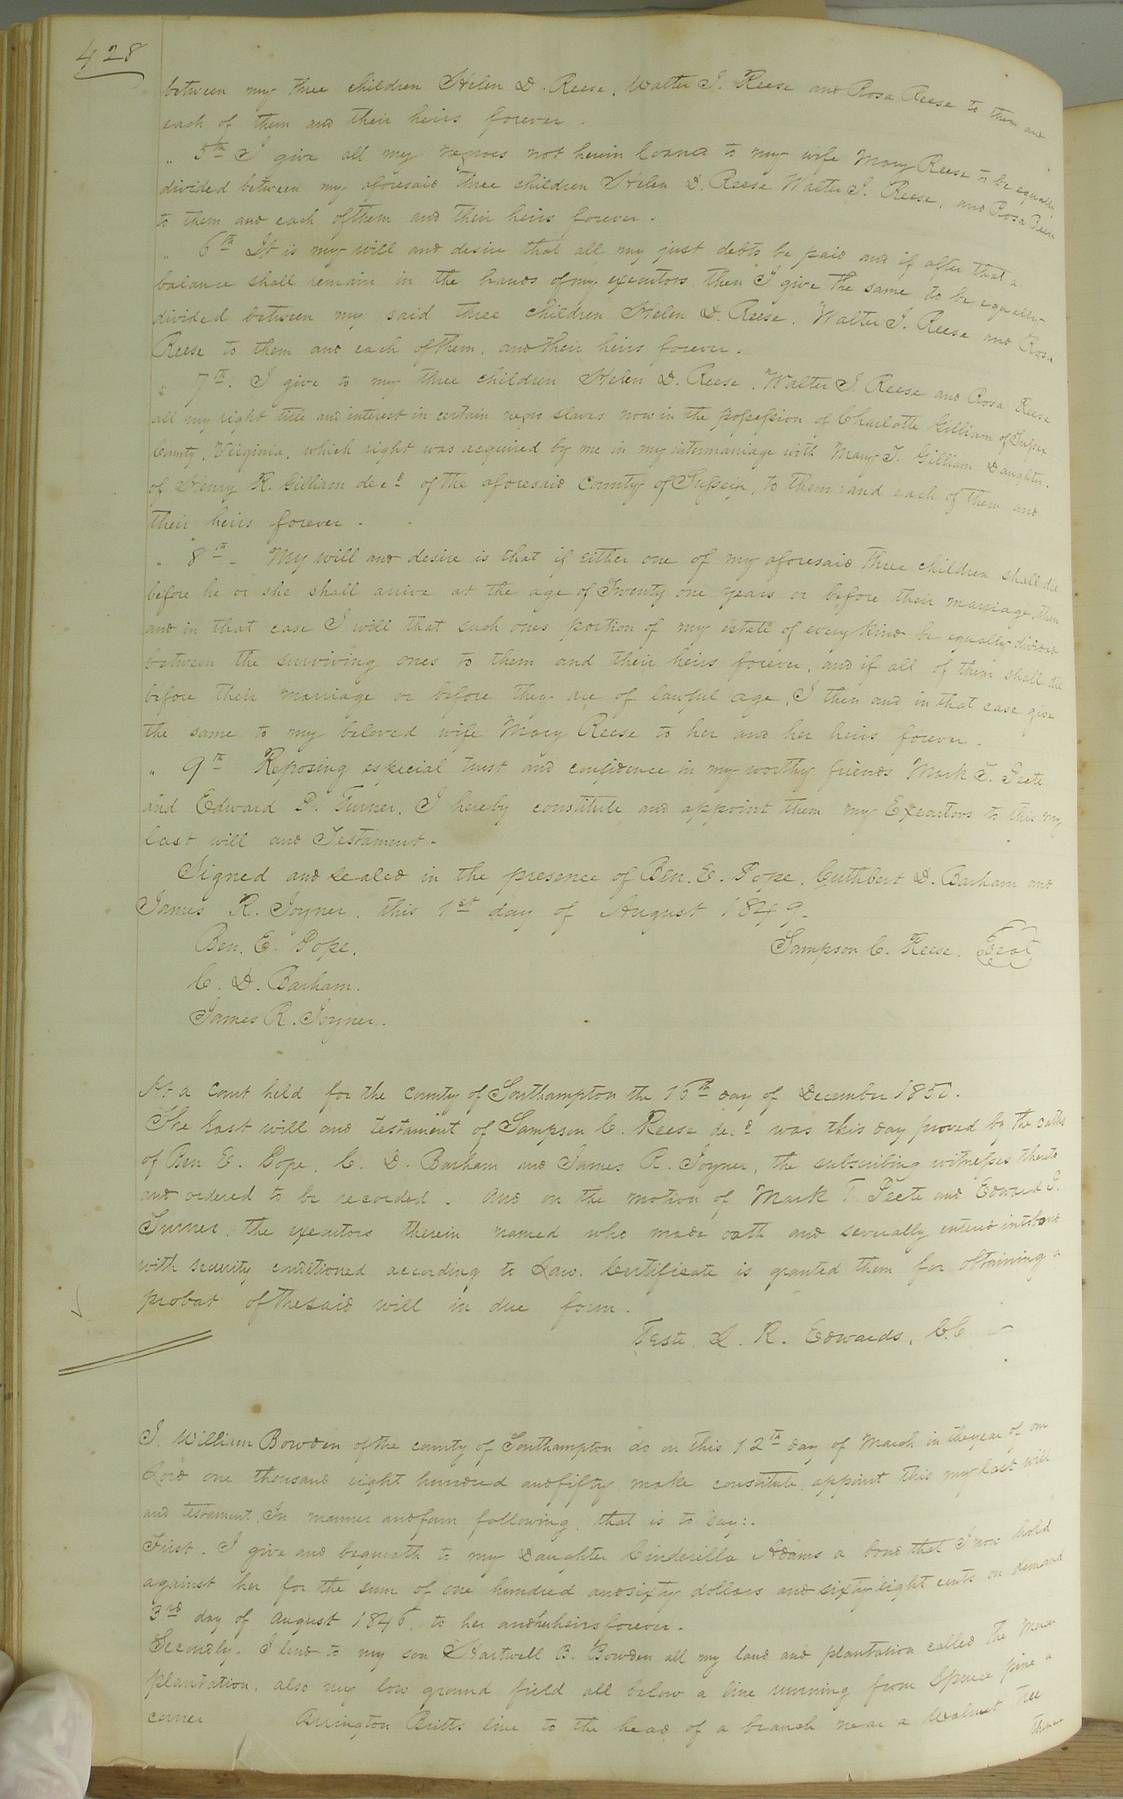 428
between my three children Helen D. Reese, Walter J. Reese and Rosa Reese to them and
each of them and their heirs forever.
" 5th I give all my negroes not herein loaned to my wife Mary Reese to be equally
divided between my aforesaid three children Helen D. Reese Walter J. Reese, and Rosa Reese
to them and each of them and their heirs forever.
" 6th It is my will and desire that all my just debts be paid and if after that a
balance shall remain in the hands of my executors then I give the same to be equally
divided between my said three children Helen D. Reese, Walter J. Reese and Rosa
Reese to them and each of them, and their heirs forever.
" 7th. I give to my three children Helen D. Reese, Walter J. Reese and Rosa Reese
all my right title and interest in certain negro slaves now in the possession of Charlotte Gilliam of Sussex
County, Virginia, which right was acquired by me in my intermarriage with Mary J. Gilliam Daughter
of Henry R. Gilliam decd of the aforesaid County of Sussex, to them and each of them and
their heirs forever.
" 8th - My will and desire is that if either one of my aforesaid three children shall die
before he or she shall arrive at the age of Twenty one years or before their marriage, then
and in that case I will that such ones portion of my estate of every kind be equally divided
between the surviving ones to them and their heirs forever, and if all of them shall die
before their marriage or before they are of lawful age, I then and in that case give
the same to my beloved wife Mary Reese to her and her heirs forever.
" 9th Reposing especial trust and confidence in my worthy friends Mark T. Peete
and Edward P. Turner, I hereby constitute and appoint them my Executors to this my
last will and Testament.
Signed and sealed in the presence of Ben. E. Pope, Cuthbert D. Barham and
James R. Joyner, this 1st day of August 1849.
Ben. E. Pope. Sampson C. Reese. Seal
C. D. Barham.
James R. Joyner.
At a Court held for the County of Southampton the 16th day of December 1850.
The Last will and testament of Sampson C. Reese decd was this day proved by the oaths
of Ben E. Pope, C. D. Barham and James R. Joyner, the subscribing witnesses thereto
and ordered to be recorded. And on the motion of Mark T. Peete and Edward P.
Turner, the executors therein named who made oath and severally entered into bond
with security conditioned according to Law. Certificate is granted them for obtaining a
probat of the said will in due form.
Teste. L. R. Edwards, C.C.
I William Bowden of the county of Southampton do on this 12th day of March in the year of our
Lord one thousand eight hundred and fifty, make constitute, appoint this my last will
and testament, In manner and form following, that is to say:.
First. I give and bequeath to my Daughter Cinderilla Adams a bond that I now hold
against her for the sum of one hundred and sixty dollars and sixty eight cents on demand
3rd day of August 1846, to her and her heirs forever.
Secondly. I lend to my son Hartwell B. Bowden all my land and plantation called the
plantation, also my low ground field all below a line running from Spruce pine a
corner Arrington Britts line to the head of a branch near a Walnut tree
thence